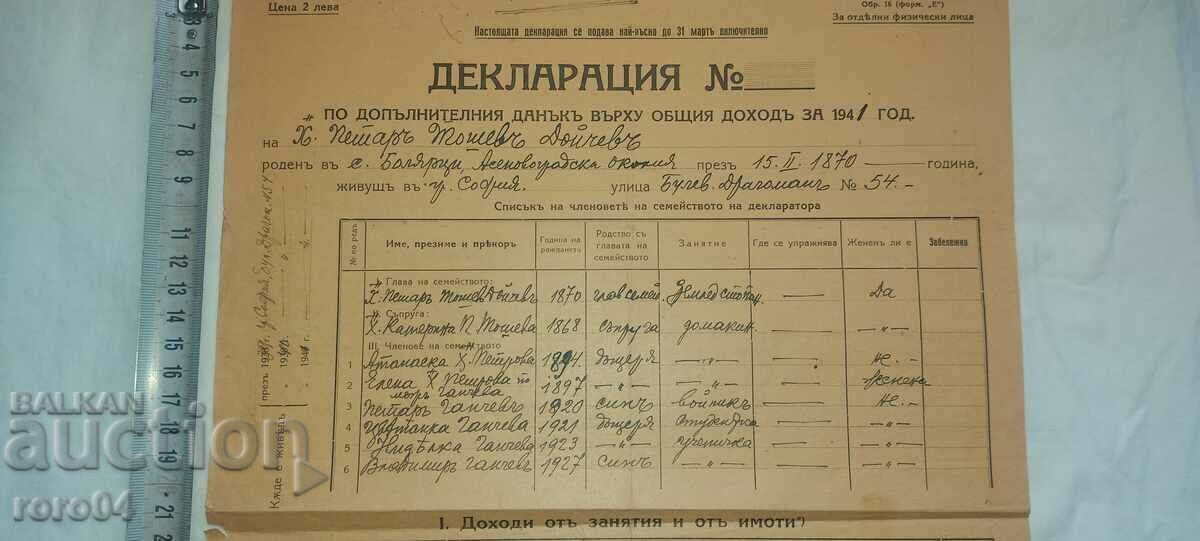 Цена 2 лева
Обр. 16 (форм. „Е“)
За отдѣлни физически лица
Настоящата декларация се подава най-късно до 31 мартъ включително
ДЕКЛАРАЦИЯ №
ПО ДОПЪЛНИТЕЛНИЯ ДАНЪКЪ ВЪРХУ ОБЩИЯ ДОХОДЪ ЗА 1941 ГОД.
на Х. Петъръ Тошевъ Дойчевъ
роденъ въ с. Болярци, Асеновградска околия презъ 15.II.1870 година,
живущъ въ гр. София. улица Булев. Драгоманъ № 54.-
Списъкъ на членоветѣ на семейството на декларатора
№ по редъ Име, презиме и прѣкоръ Година на раждането Родство съ главата на семейството Занятие Где се упражнява Жененъ ли е Забележка
I. Глава на семейството:
Х. Петъръ Тошев Дойчевъ 1870 глав. семей. Землед. стопан. — Да
II. Съпруга:
Х. Катерина П. Тошева 1868 съпруга домакин. — -„-
III. Членове на семейството
1 Атанаска Х. Петрова 1894 дъщеря -„- — не.-
2 Елена Х Петрова по мъж Ганчева 1897 -„- -„- — женена
3 Петъръ Ганчевъ 1920 синъ войникъ — не.-
4 Цвѣтанка Ганчева 1921 дъщеря студентка — -„-
5 Недѣлка Ганчева 1923 -„- ученичка — -„-
6 Владимиръ Ганчевъ 1927 синъ -„- — -„-
Кѫде е живѣлъ
презъ 1939 г. София, бул. Драгом. № 54
„ 1940 г.
„ 1941 г.
I. Доходи отъ занятия и отъ имоти*)
BALKAN
auction
roro04
3
4
5
6
7
8
9
10
11
12
13
14
15
16
17
18
19
20
21